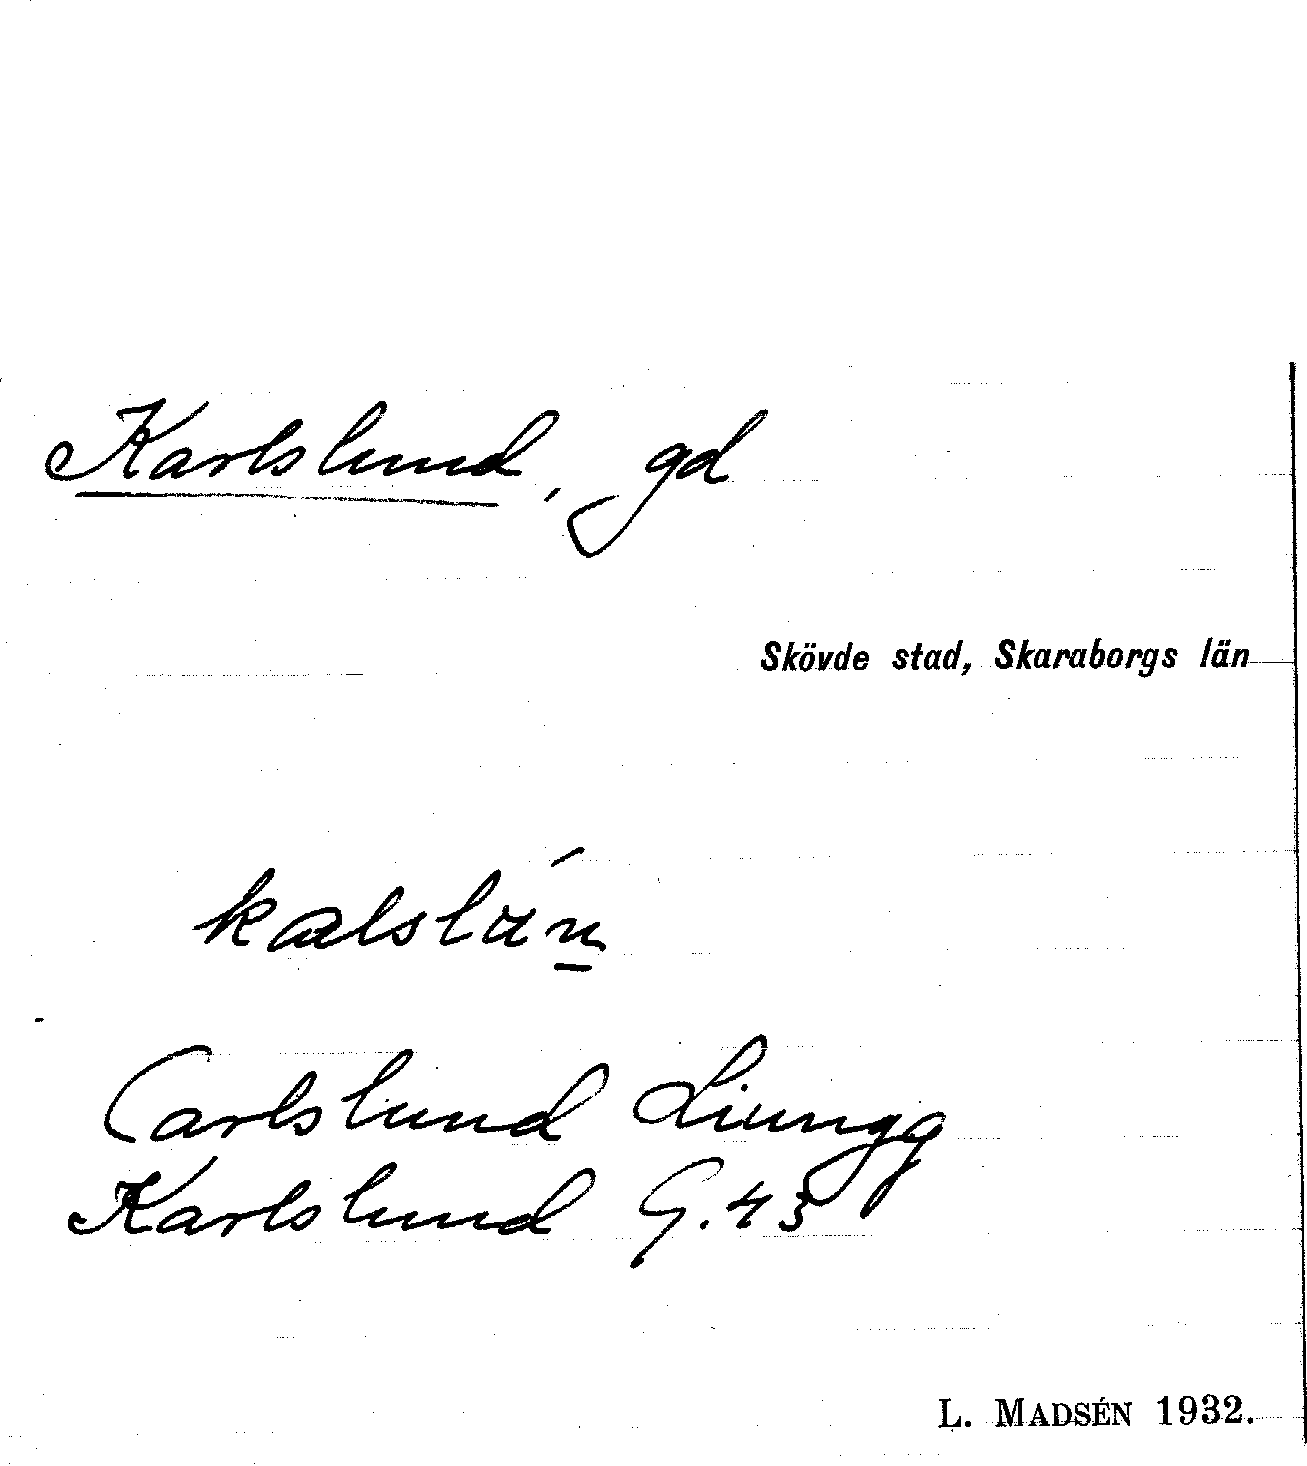 Karlslund, gd
Skövde stad, Skaraborgs län
kalslán
Carlslund Liungg
Karlslund G. 45
L. MADSÉN 1932.